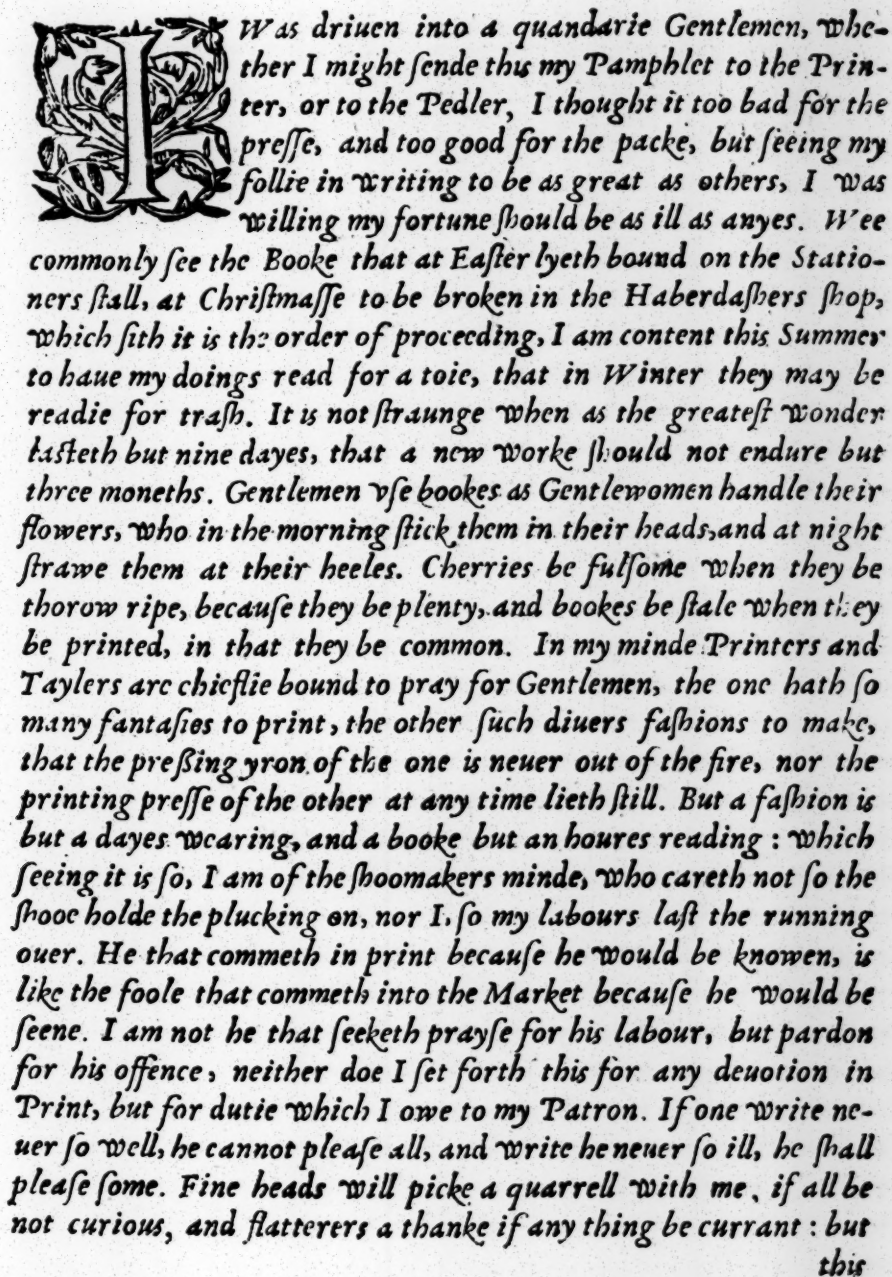 I Was driuen into a quandarie Gentlemen, whe-
ther I might ſende this my Pamphlet to the Prin-
ter, or to the Pedler, I thought it too bad for the
preſſe, and too good for the packe, but ſeeing my
follie in writing to be as great as others, I was
willing my fortune ſhould be as ill as anyes. Wee
commonly ſee the Booke that at Eaſter lyeth bound on the Statio-
ners ſtall, at Chriſtmaſſe to be broken in the Haberdaſhers ſhop,
which ſith it is the order of proceeding, I am content this Summer
to haue my doings read for a toie, that in Winter they may be
readie for traſh. It is not ſtraunge when as the greateſt wonder
laſteth but nine dayes, that a new worke ſhould not endure but
three moneths. Gentlemen vſe bookes as Gentlewomen handle their
flowers, who in the morning ſtick them in their heads, and at night
ſtrawe them at their heeles. Cherries be fulſome when they be
thorow ripe, becauſe they be plenty, and bookes be ſtale when they
be printed, in that they be common. In my minde Printers and
Taylers are chieflie bound to pray for Gentlemen, the one hath ſo
many fantaſies to print, the other ſuch diuers faſhions to make,
that the preßing yron of the one is neuer out of the fire, nor the
printing preſſe of the other at any time lieth ſtill. But a faſhion is
but a dayes wearing, and a booke but an houres reading : which
ſeeing it is ſo, I am of the ſhoomakers minde, who careth not ſo the
ſhooe holde the plucking on, nor I, ſo my labours laſt the running
ouer. He that commeth in print becauſe he would be knowen, is
like the foole that commeth into the Market becauſe he would be
ſeene. I am not he that ſeeketh prayſe for his labour, but pardon
for his offence, neither doe I ſet forth this for any deuotion in
Print, but for dutie which I owe to my Patron. If one write ne-
uer ſo well, he cannot pleaſe all, and write he neuer ſo ill, he ſhall
pleaſe ſome. Fine heads will picke a quarrell with me, if all be
not curious, and flatterers a thanke if any thing be currant : but
this